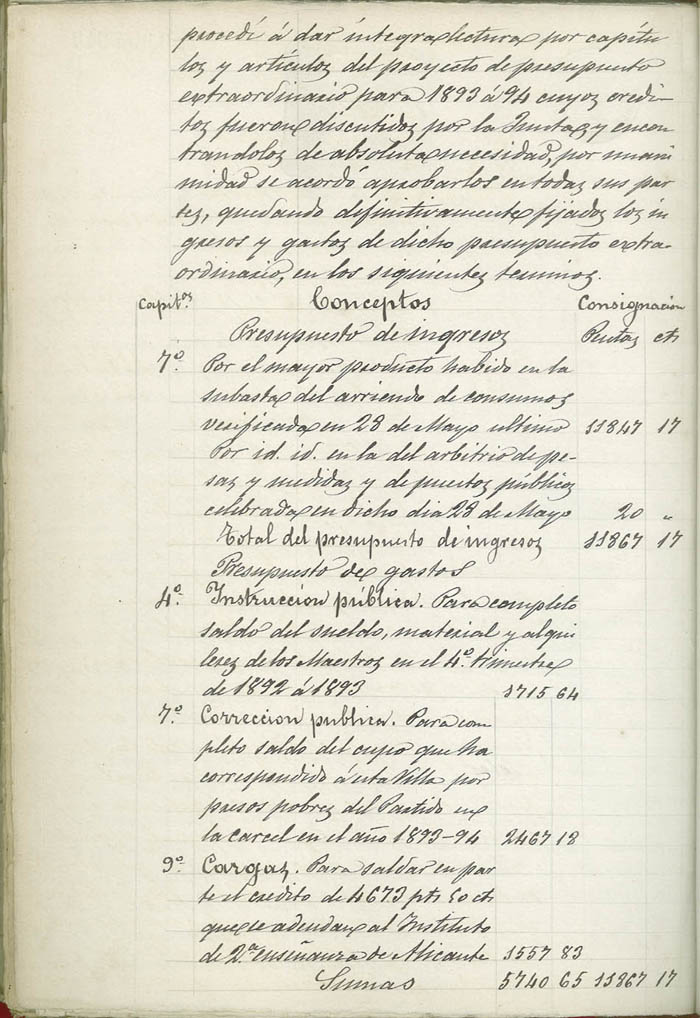 procedí á dar íntegra lectura por capítu
los y artículos del proyecto de presupuesto
extraordinario para 1893 á 94 cuyos crédi-
tos fueron discutidos por la Junta, y encon
trandolos de absoluta necesidad, por unani
midad se acordó aprobarlos en todas sus par
tes, quedando definitivamente fijados los in
gresos y gastos de dicho presupuesto extra-
ordinario, en los siguientes terminos.
Capitos. Conceptos Consignación
Presupuesto de ingresos Pesetas cts
7º. Por el mayor producto habido en la
subasta del arriendo de consumos
verificada en 28 de Mayo ultimo 11847 17
Por id. id. en la del arbitrio de pe-
sas y medidas y de puestos públicos
celebrada en dicho dia 28 de Mayo 20 "
Total del presupuesto de ingresos 11867 17
Presupuesto de gastos
4º. Instruccion pública. Para completo
saldo del sueldo, material y alqui
leres de los Maestros en el 4º. trimestre
de 1892 á 1893 1715 64
7º. Correccion publica. Para com
pleto saldo del cupo que ha
correspondido á esta Villa por
presos pobres del Partido en
la carcel en el año 1893-94 2467 18
9º. Cargas. Para saldar en par
te el credito de 4673 pts 50 cts
que se adeudan al Instituto
de 2ª. enseñanza de Alicante 1557 83
Sumas 5740 65 11867 17